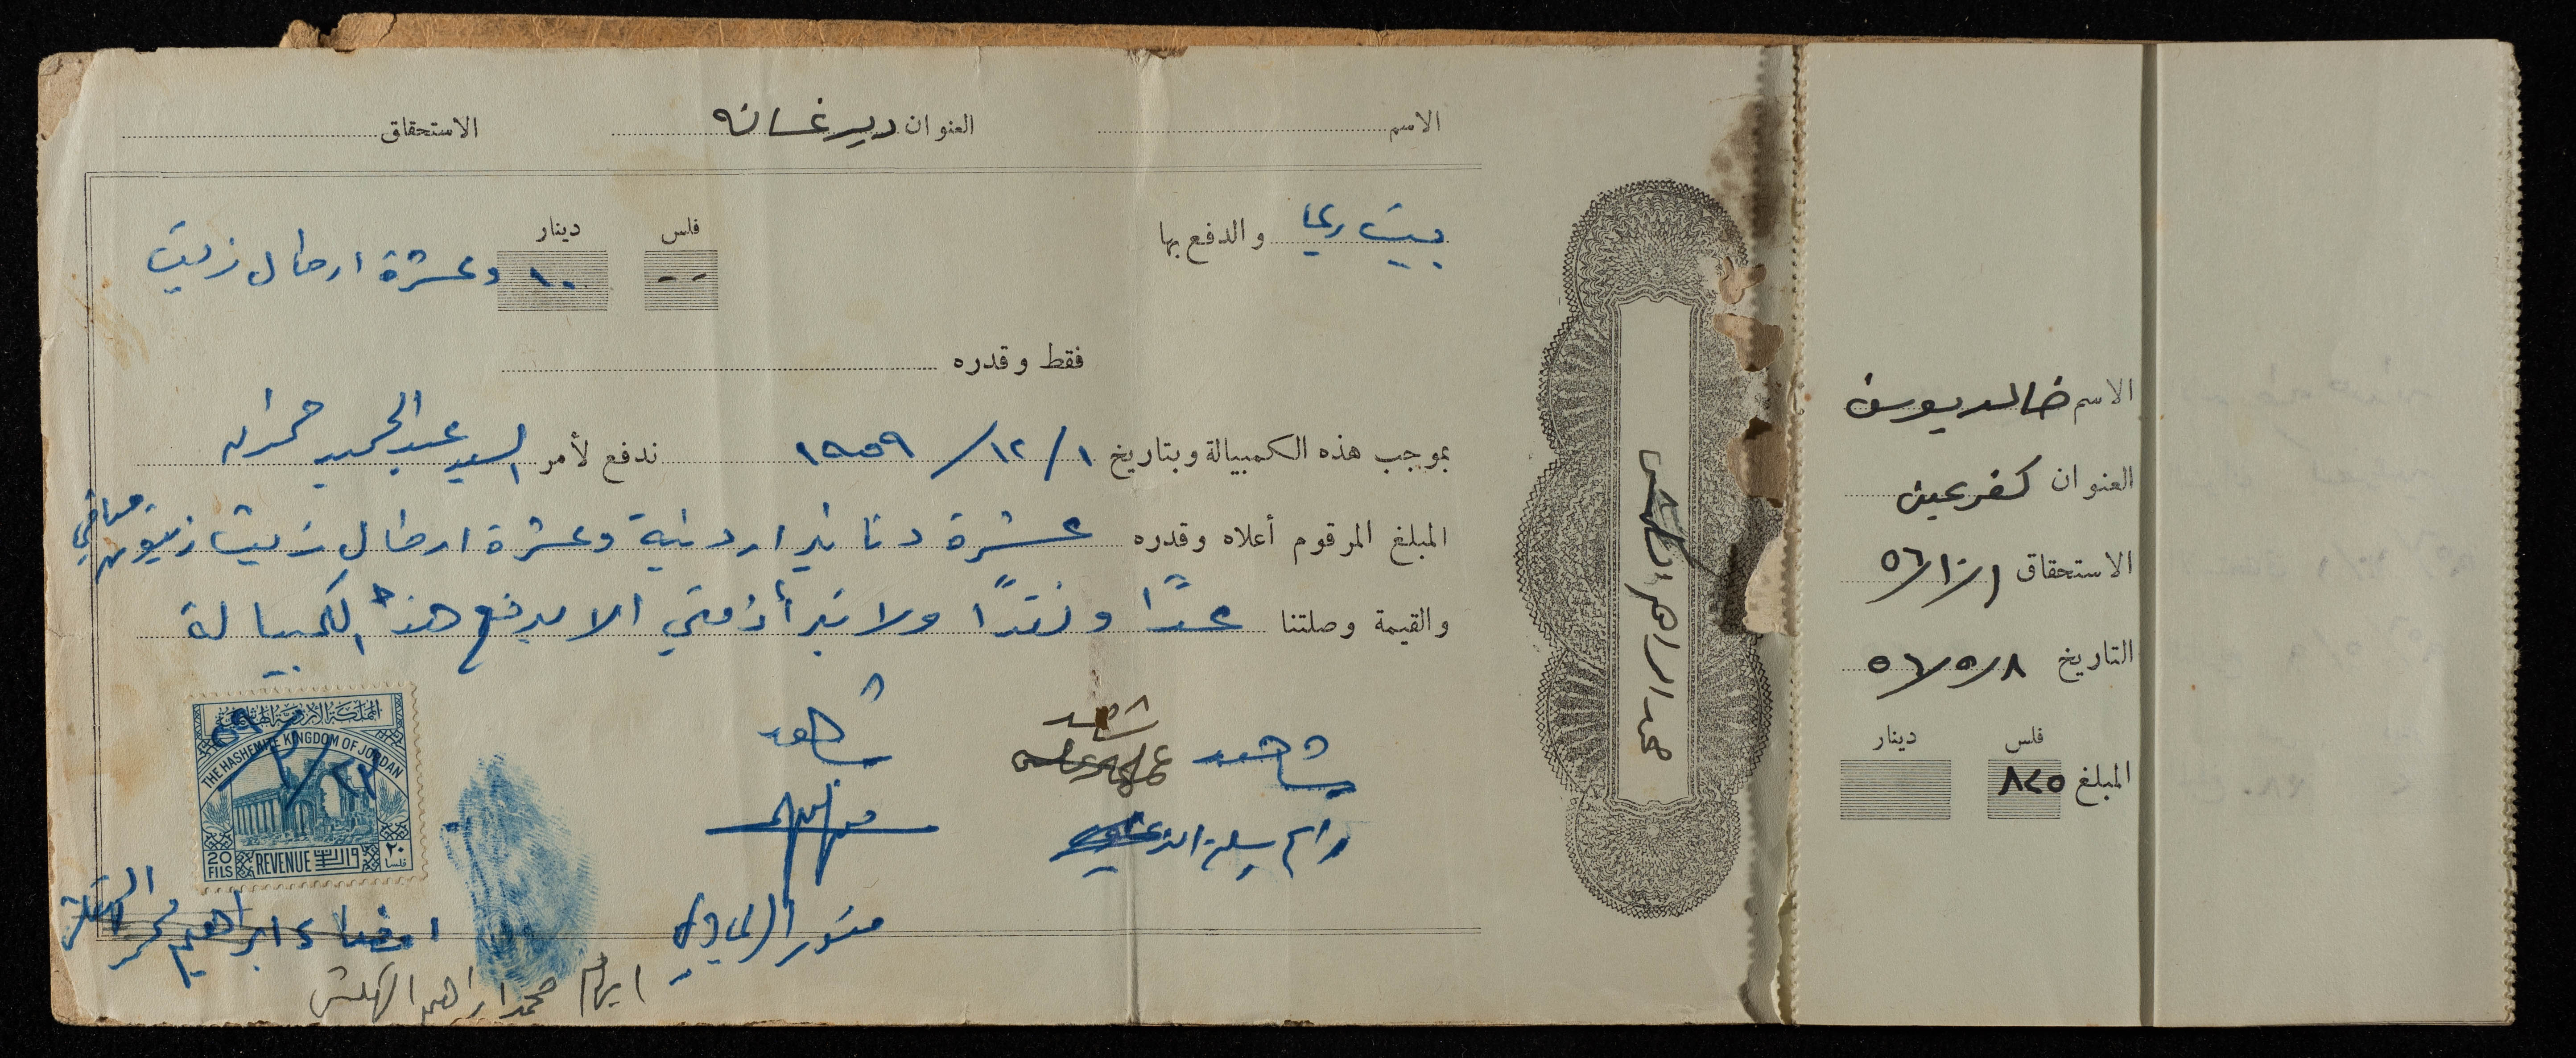 الاسم العنوان دير غسانه الاستحقاق
بيت ريما والدفع بها
فلس دينار
-- ١٠ وعشرة ارطال زيت
فقط وقدره
بموجب هذه الكمبيالة وبتاريخ ١/١٢/١٩٥٩ ندفع لأمر السيد عبد الحميد حمدان
المبلغ المرقوم أعلاه وقدره عشرة دنانير اردنية وعشرة ارطال زيت زيتون صافي
والقيمة وصلتنا عدًا ونقدًا ولا تبرأ ذمتي الا بدفع هذه الكمبيالة
شاهد شاهد شاهد
منور الريماوي
امضاء ابراهيم محمد
محمد ابراهيم
المملكة الأردنية الهاشمية
THE HASHEMITE KINGDOM OF JORDAN
20 FILS REVENUE ٢٠ فلسا
محمد ابراهيم
الاسم خالد يوسف
العنوان كفر عين
الاستحقاق ١/١٠/٥٦
التاريخ ٨/٥/٥٦
فلس دينار
المبلغ ٨٢٥